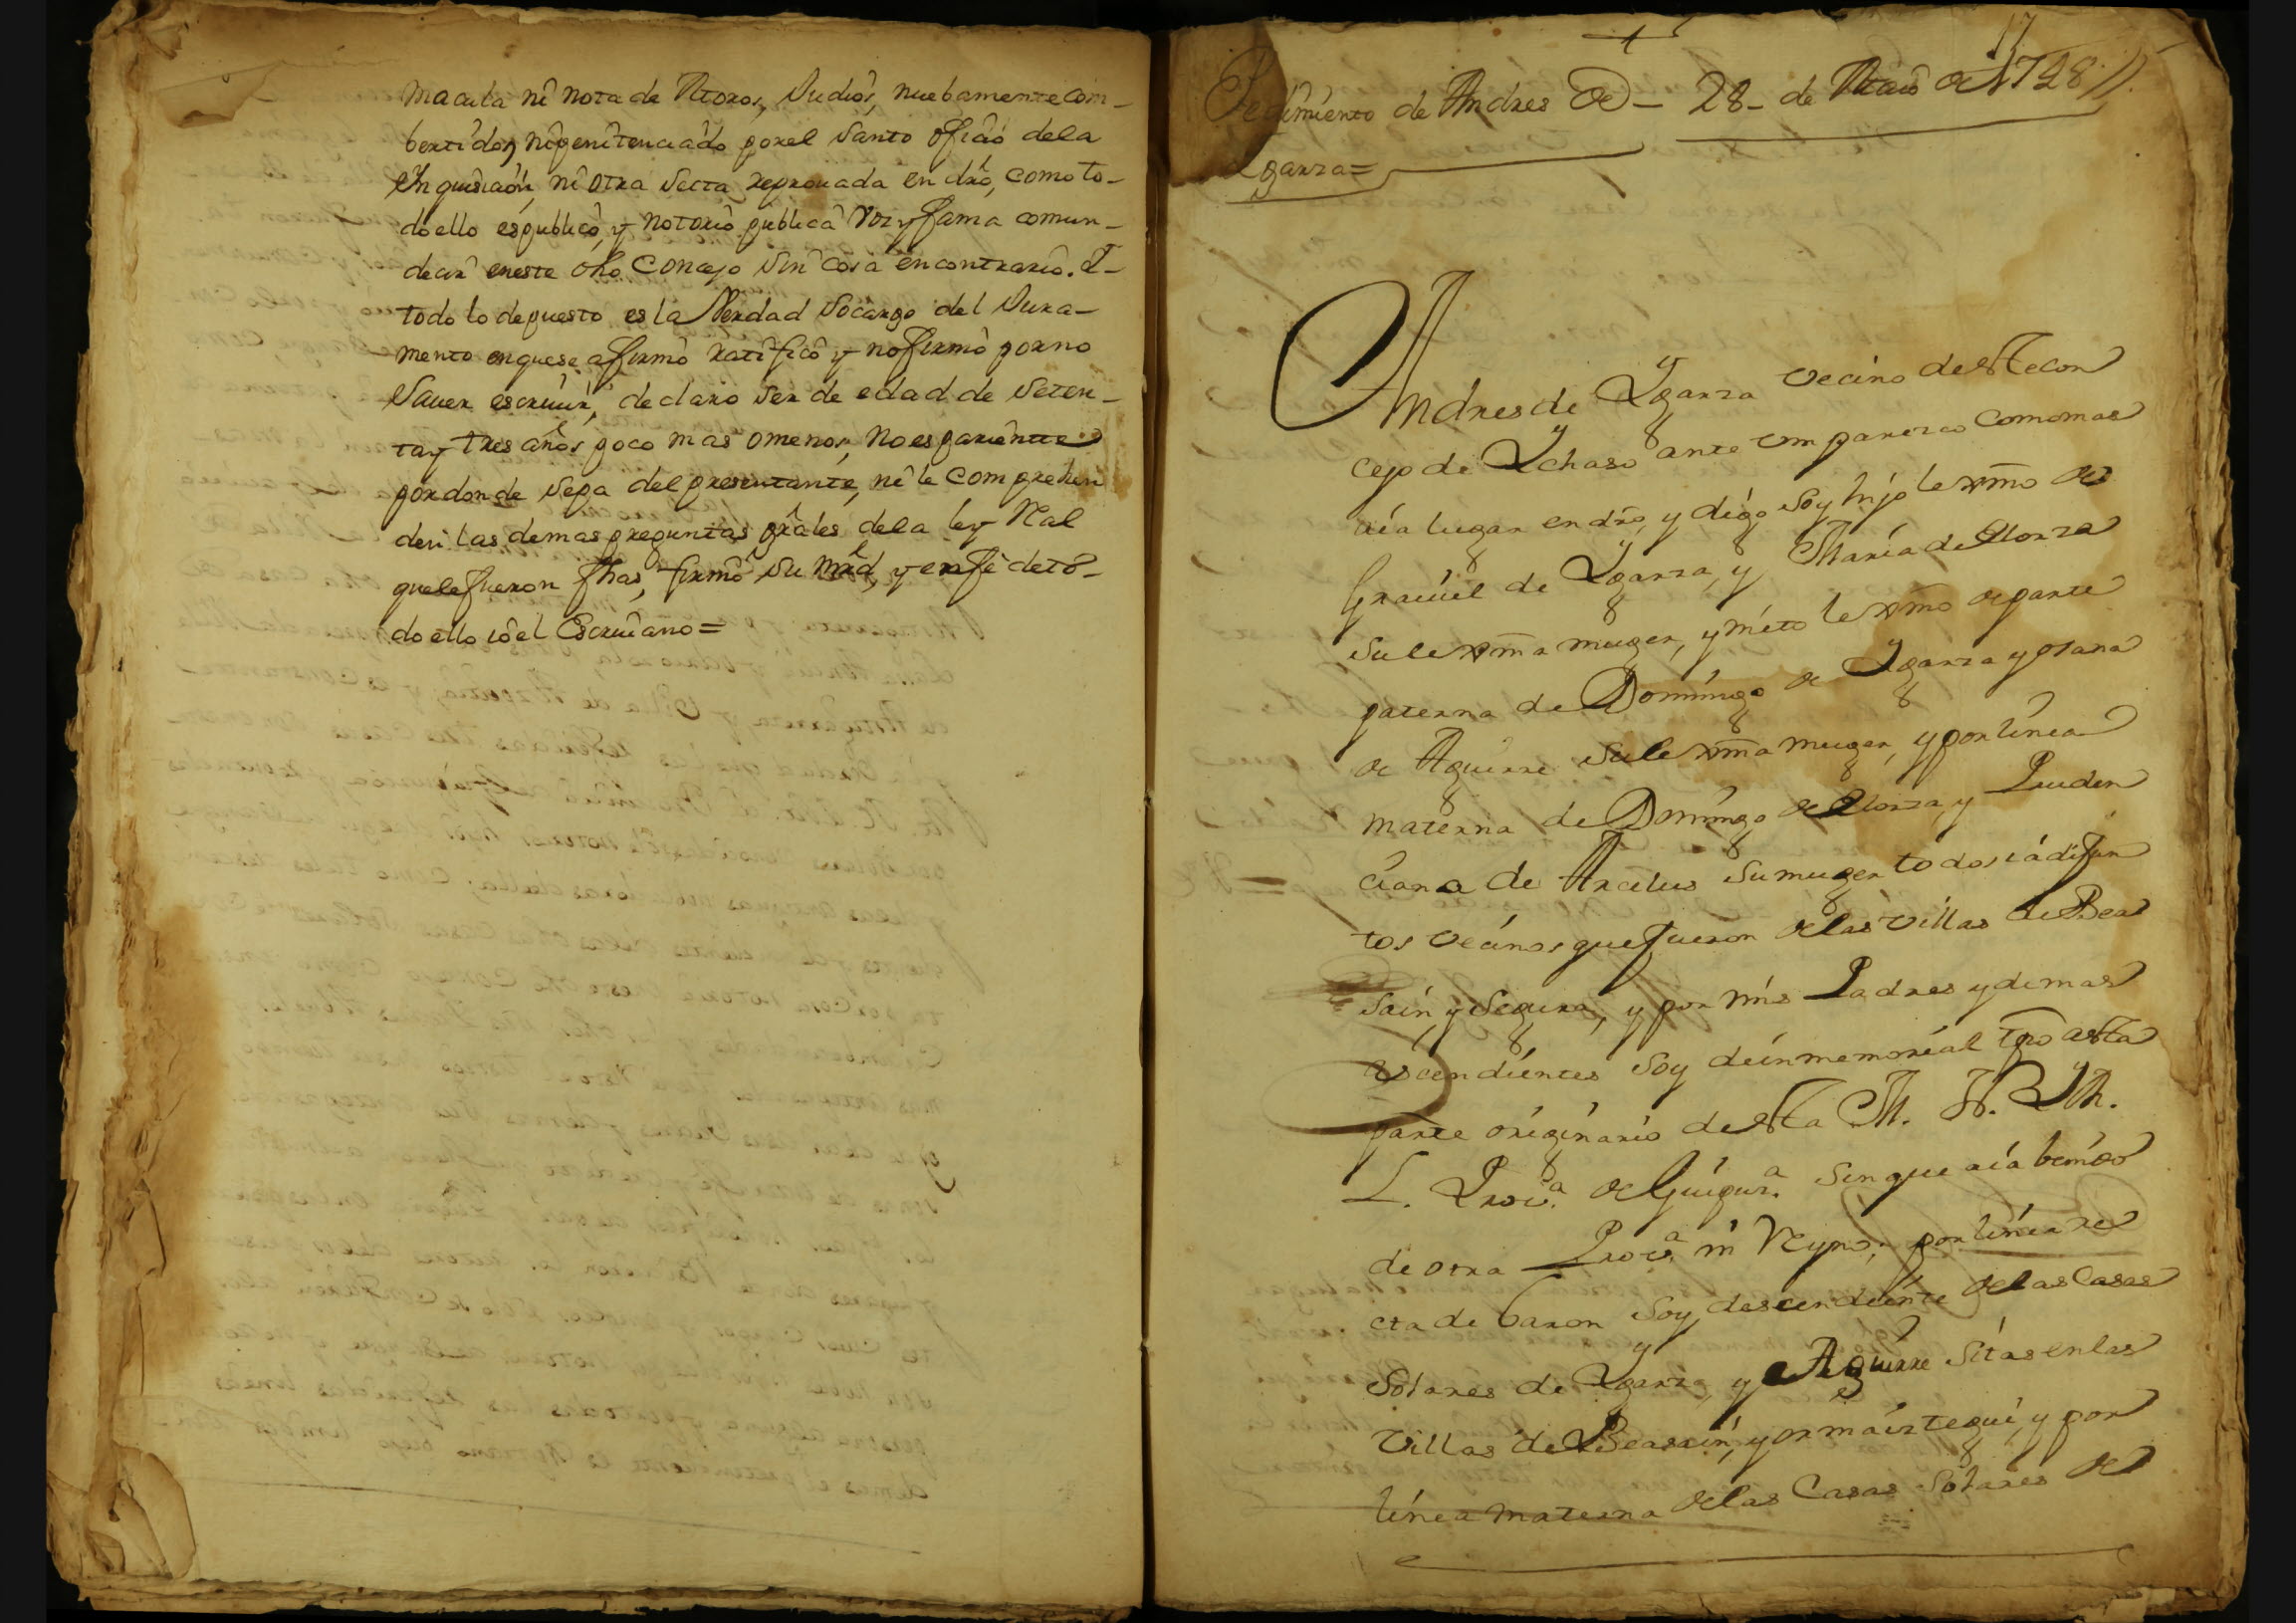 macula ni nota de Moros, Judios, nuebamente com-
bertidos, ni penitenciado por el Santo oficio de la
Inquisicion, ni otra Secta reprouada en dro, como to-
do ello es publico, y notorio publica voz y fama comun-
decir en este dho Concejo sin cosa en contrario. I-
todo lo depuesto es la Verdad Socargo del Jura-
mento en que se afirmó ratificó y no firmó por no
Sauer escriuir, declaro ser de edad de Seten-
ta y tres años poco mas o menos, no es pariente
por donde sepa del presentante, ni le comprehen
den las demas preguntas grales de la ley Real
que le fueron fhas, firmó su mrd, y en fe de to-
do ello io el Escriuano=
17
Pedimiento de Andres de - 28- de Maio de 1728 //.
Ygarza=
Andres de Ygarza vecino deste con
cejo de Ychaso ante vm parezco como mas
aia lugar en dro, y digo soy hijo lexmo de
Grauiel de Ygarza, y Maria de Elorza
su lexma muger, y nieto lexmo de parte
paterna de Domingo de Ygarza y osana
de Aguirre su lexma muger, y por linea
materna de Domingo de Elorza, y Pruden
ciana de Arcelus su muger todos ia difun
tos vecinos que fueron de las villas de Bea
sain, y Segura, y por mis Padres y demas
ascendientes soy de inmemorial tpo a esta
parte originario desta M. N. Y M.
L. Prou.ª de Guipuz.ª sin que aia benido
de otra Prou.ª ni Reyno; por linea re
cta de baron soy descendiente de las Casas
Solares de Ygarza, y Aguirre sitas en las
villas de Beasain, y ormaiztegui, y por
linea materna de las Casas Solares de